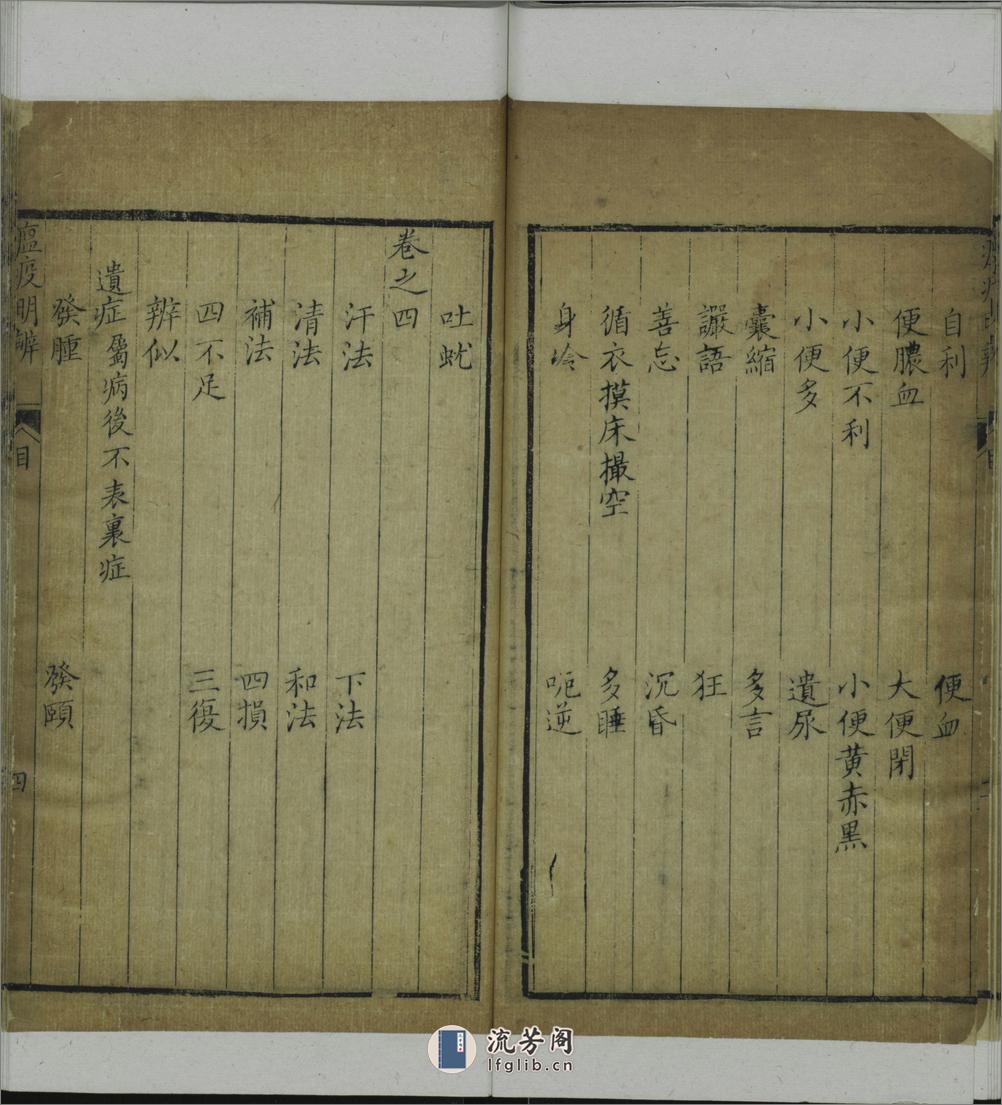 自利 便血
便膿血 大便閉
小便不利 小便黃赤黑
小便多 遺尿
囊縮 多言
譫語 狂
善忘 沉昏
循衣摸床撮空 多睡
身冷 呃逆
吐蚘
卷之四
汗法 下法
清法 和法
補法 四損
四不足 三復
辨似
遺症屬病後不表裏症
發腫 發頤
瘟疫明辨 目 四
流芳阁
lfglib.cn